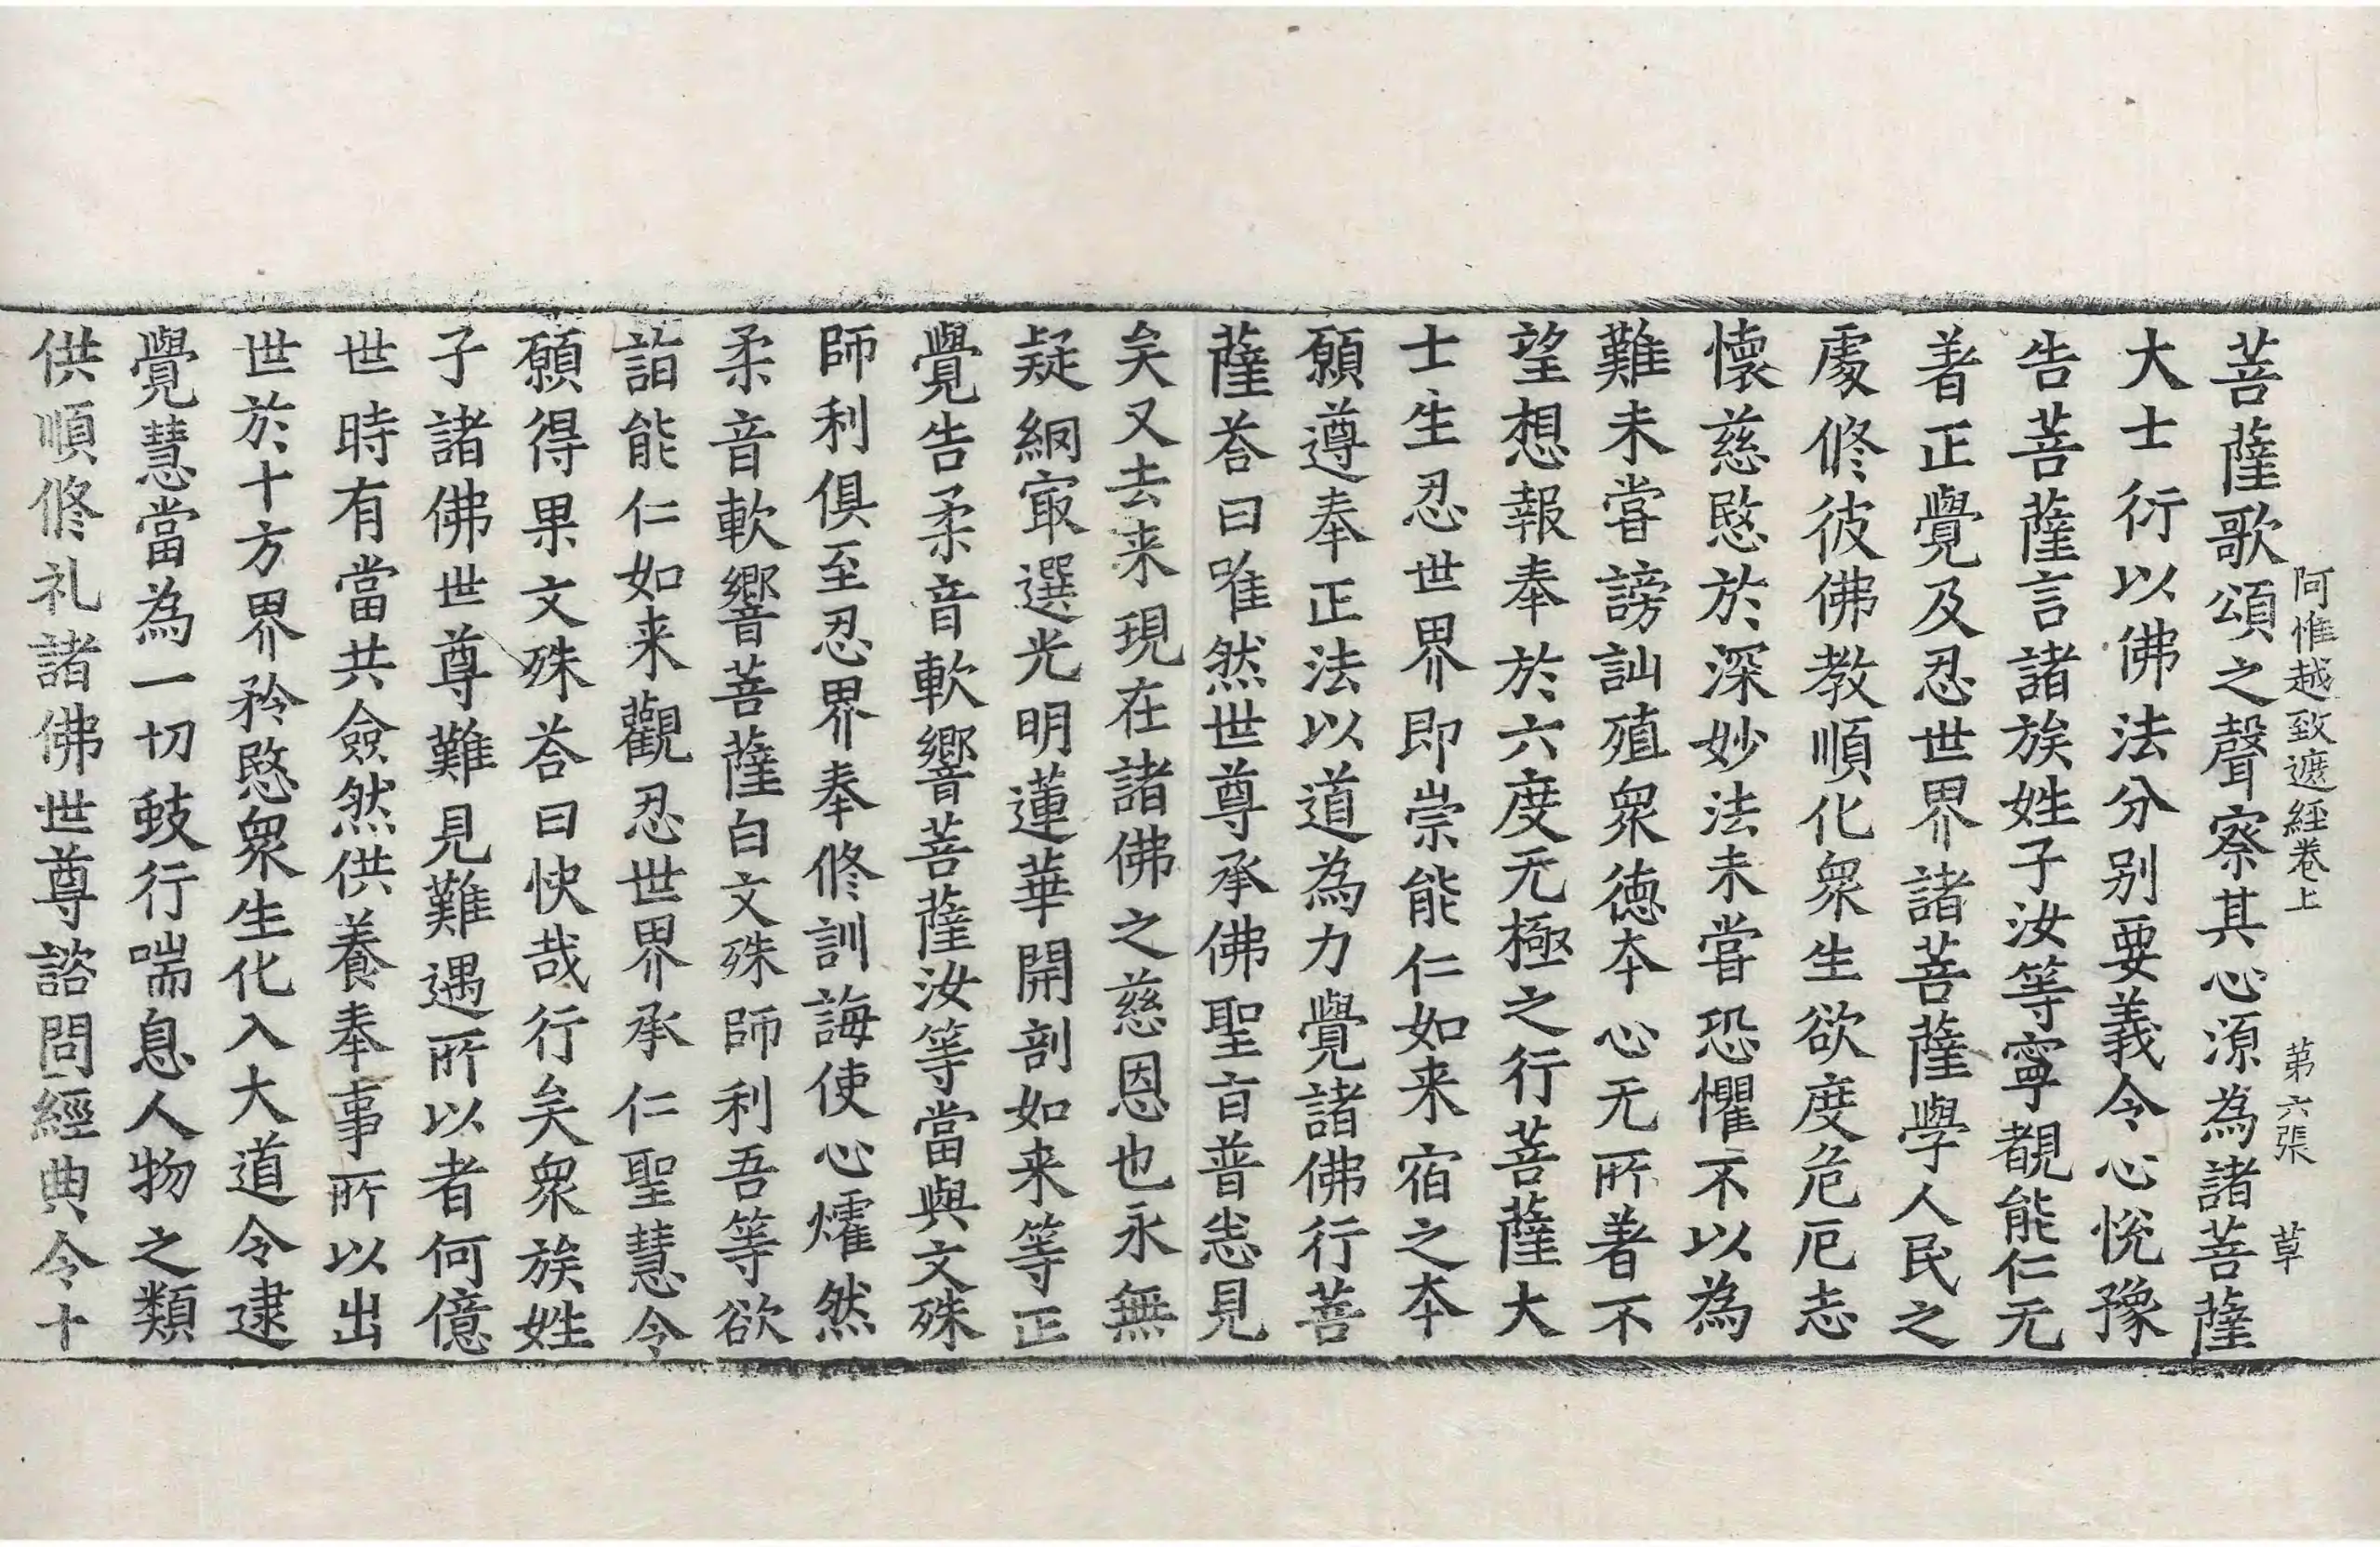 阿惟越致遮經卷上　第六張　草
菩薩歌頌之聲察其心源為諸菩薩
大士衍以佛法分別要義令心悅豫
告菩薩言諸族姓子汝等寧覩能仁无
著正覺及忍世界諸菩薩學人民之
處修彼佛教順化衆生欲度危厄志
懷慈愍於深妙法未甞恐懼不以為
難未甞謗訕殖衆德夲心无所著不
望想報奉於六度无極之行菩薩大
士生忍世界即崇能仁如来宿之夲
願遵奉正法以道為力覺諸佛行菩
薩荅曰唯然世尊承佛聖旨普悉見
矣又去来現在諸佛之慈恩也永無
疑網㝡選光明蓮華開剖如来等正
覺告柔音軟響菩薩汝等當與文殊
師利俱至忍界奉修訓誨使心㸌然
柔音軟響菩薩白文殊師利吾等欲
詣能仁如来觀忍世界承仁聖慧令
願得果文殊荅曰快哉行矣衆族姓
子諸佛世尊難見難遇所以者何億
世時有當共僉然供養奉事所以出
世於十方界矜愍衆生化入大道令逮
覺慧當為一切蚑行喘息人物之類
供順修礼諸佛世尊諮問經典令十